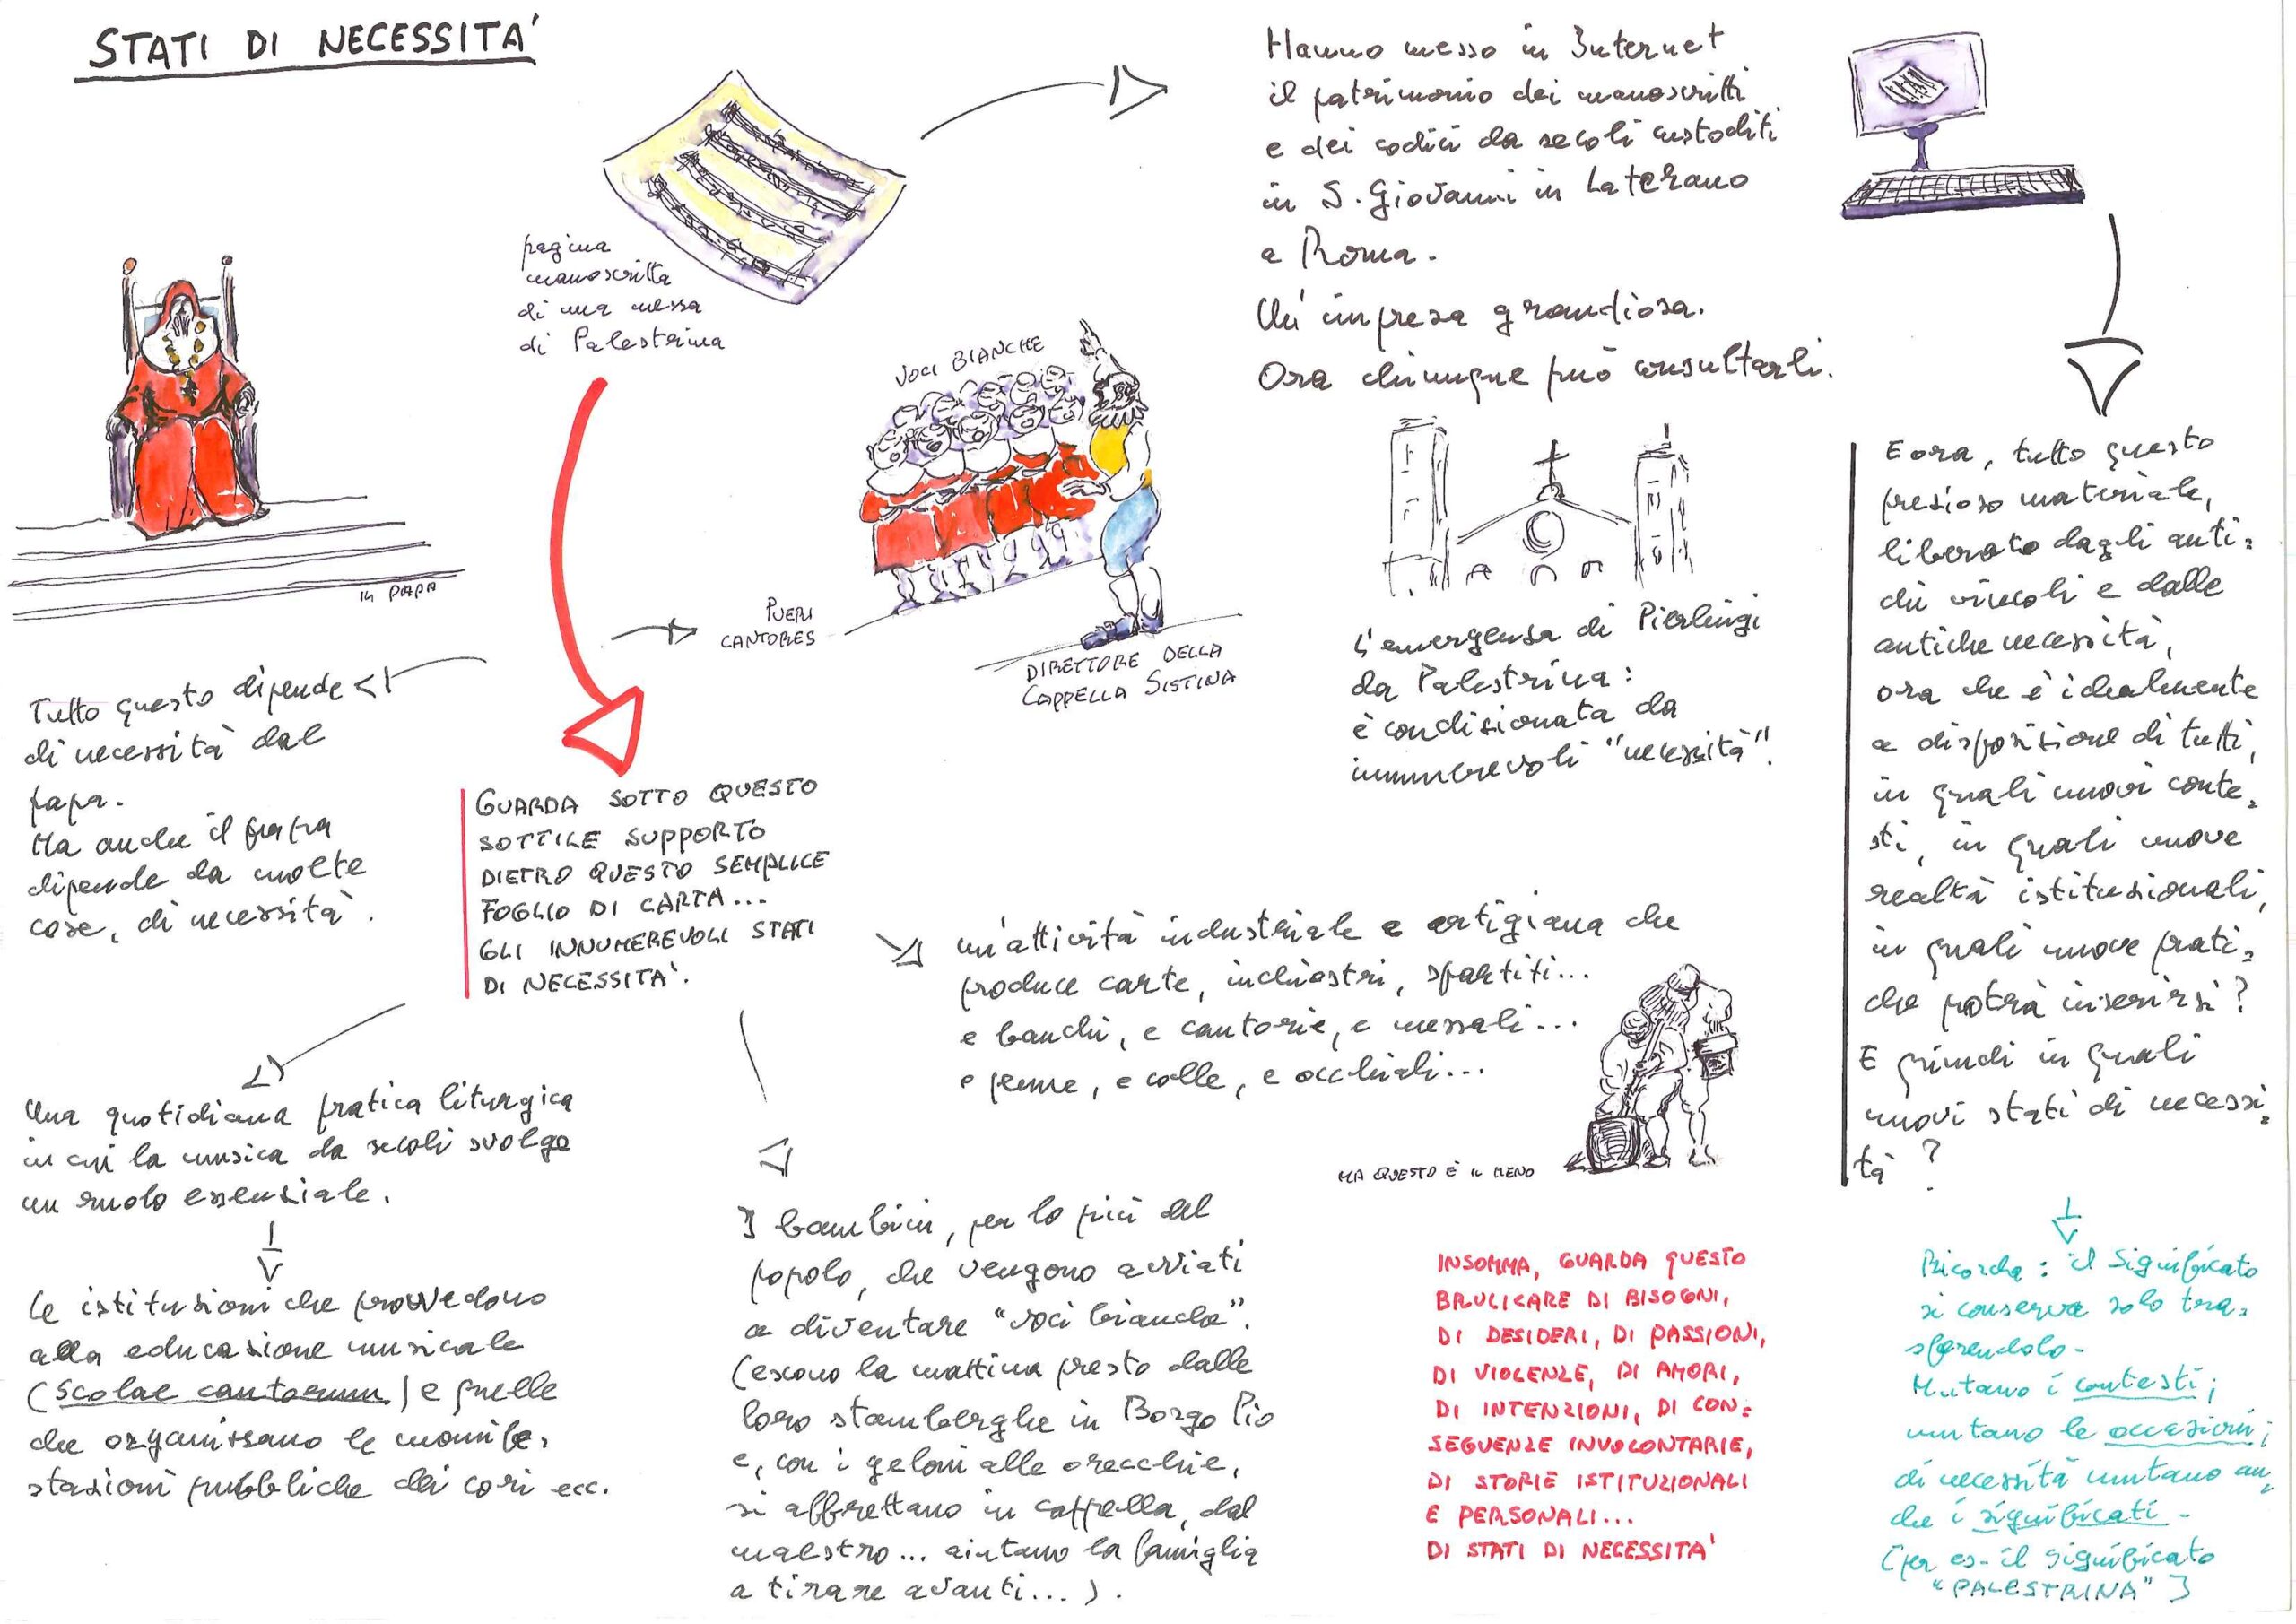 STATI DI NECESSITA'
pagina
manoscritta
di una messa
di Palestrina
Hanno messo in Internet
il patrimonio dei manoscritti
e dei codici da secoli custoditi
in S. Giovanni in Laterano
a Roma.
Un'impresa grandiosa.
Ora chiunque può consultarli.
IL PAPA
VOCI BIANCHE
PUERI
CANTORES
DIRETTORE DELLA
CAPPELLA SISTINA
Tutto questo dipende
di necessità dal
papa.
Ma anche il papa
dipende da molte
cose, di necessità.
GUARDA SOTTO QUESTO
SOTTILE SUPPORTO
DIETRO QUESTO SEMPLICE
FOGLIO DI CARTA...
GLI INNUMEREVOLI STATI
DI NECESSITA'.
L'emergenza di Pierluigi
da Palestrina:
è condizionata da
innumerevoli "necessità".
E ora, tutto questo
prezioso materiale,
liberato dagli anti=
chi vincoli e dalle
antiche necessità,
ora che è idealmente
a disposizione di tutti,
in quali nuovi conte=
sti, in quali nuove
realtà istituzionali,
in quali nuove prati=
che potrà inserirsi?
E quindi in quali
nuovi stati di necessi=
tà?
un'attività industriale e artigiana che
produce carte, inchiostri, spartiti...
e banchi, e cantorie, e messali...
e penne, e colle, e occhiali...
MA QUESTO È IL MENO
Una quotidiana pratica liturgica
in cui la musica da secoli svolge
un ruolo essenziale.
Le istituzioni che provvedono
alla educazione musicale
(scolae cantorum) e quelle
che organizzano le manife=
stazioni pubbliche dei cori ecc.
I bambini, per lo più del
popolo, che vengono avviati
a diventare "voci bianche".
(escono la mattina presto dalle
loro stamberghe in Borgo Pio
e, con i geloni alle orecchie,
si affrettano in cappella, dal
maestro... aiutano la famiglia
a tirare avanti...).
INSOMMA, GUARDA QUESTO
BRULICARE DI BISOGNI,
DI DESIDERI, DI PASSIONI,
DI VIOLENZE, DI AMORI,
DI INTENZIONI, DI CON=
SEGUENZE INVOLONTARIE,
DI STORIE ISTITUZIONALI
E PERSONALI...
DI STATI DI NECESSITA'
Ricorda: il significato
si conserva solo tra=
sferendolo.
Mutano i contesti;
mutano le occasioni;
di necessità mutano an=
che i significati.
(per es. il significato
"PALESTRINA")